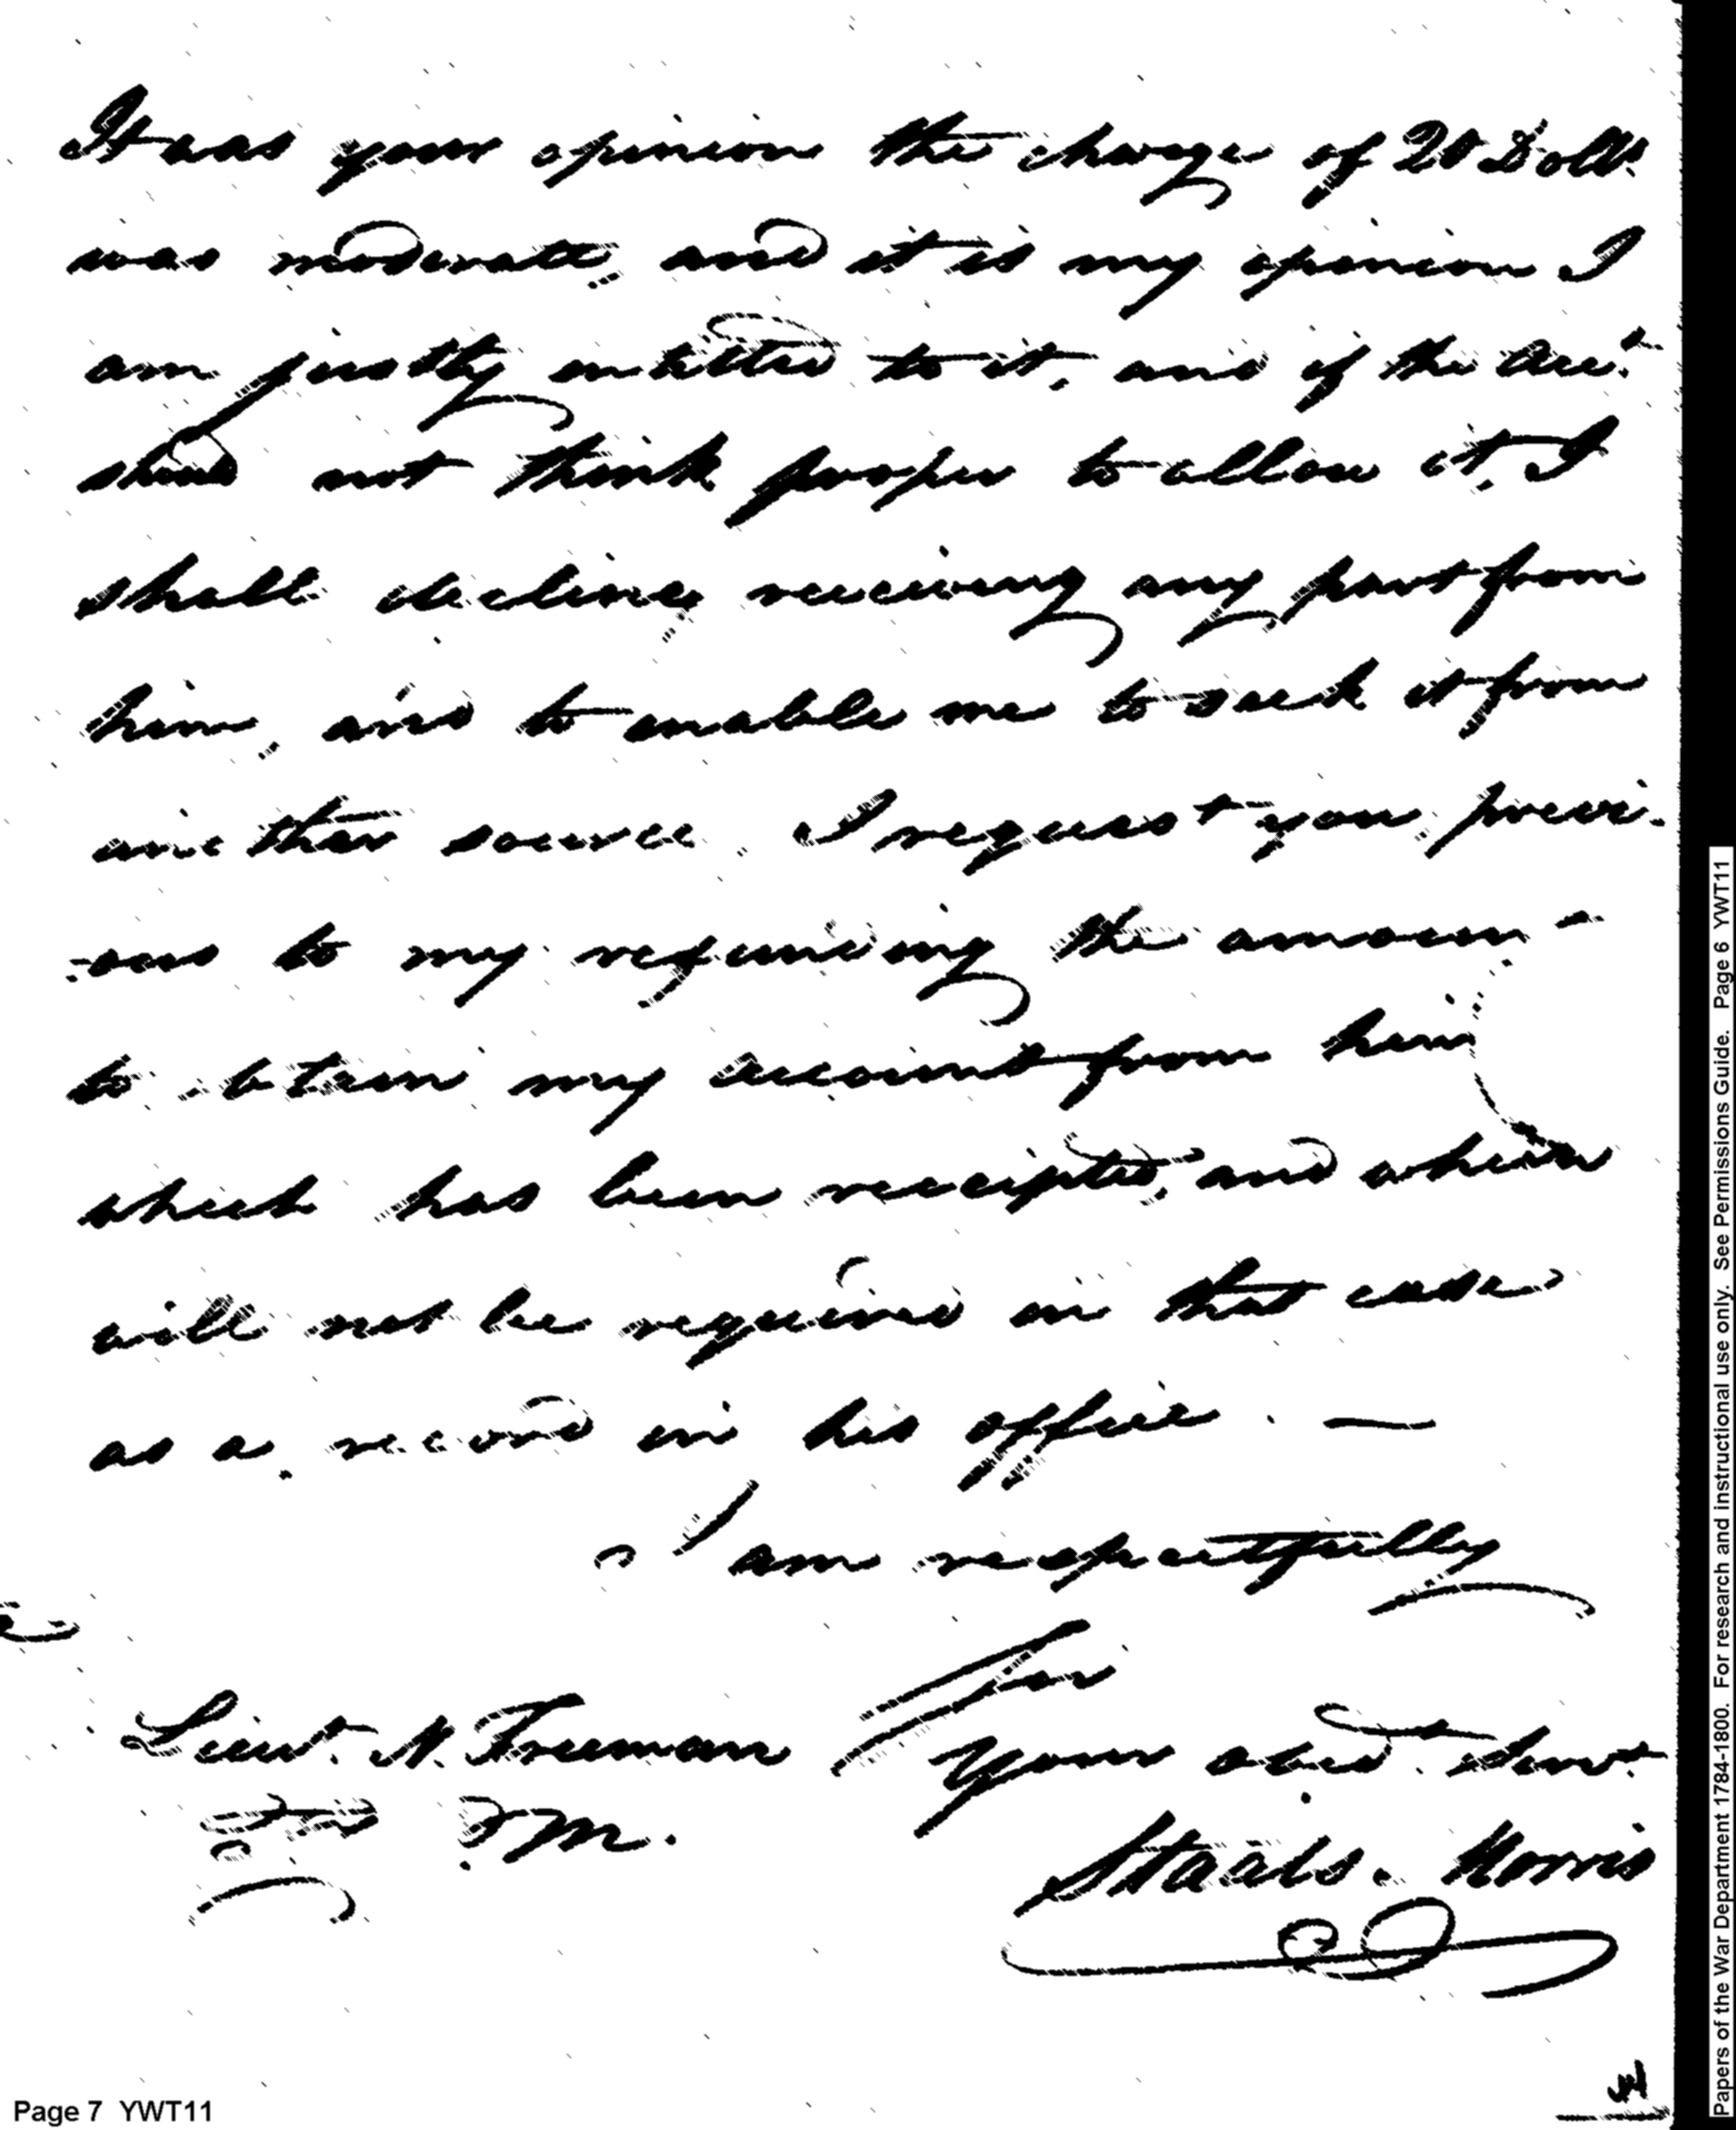 It was your opinion the charge of 20 Dolls.
was moderate, and it is my opinion I
am justly entitled to it, and if the Acct.
shoud not think proper to allow it, I
shall decline receiving any part from
him, and to enable me to seek it from
another source. I request you previ-
-ous to my refunding the amount
to obtain my account from him
which has been receipted, and which
will not be required in that case
as a record in his office. —
I am respectfully
Sir
Lieut. N. Freeman
your obed. Servt.
M.
Staats. Morris
Page 7 YWT11
Papers of the War Department 1784-1800. For research and instructional use only. See Permissions Guide. Page 6 YWT11